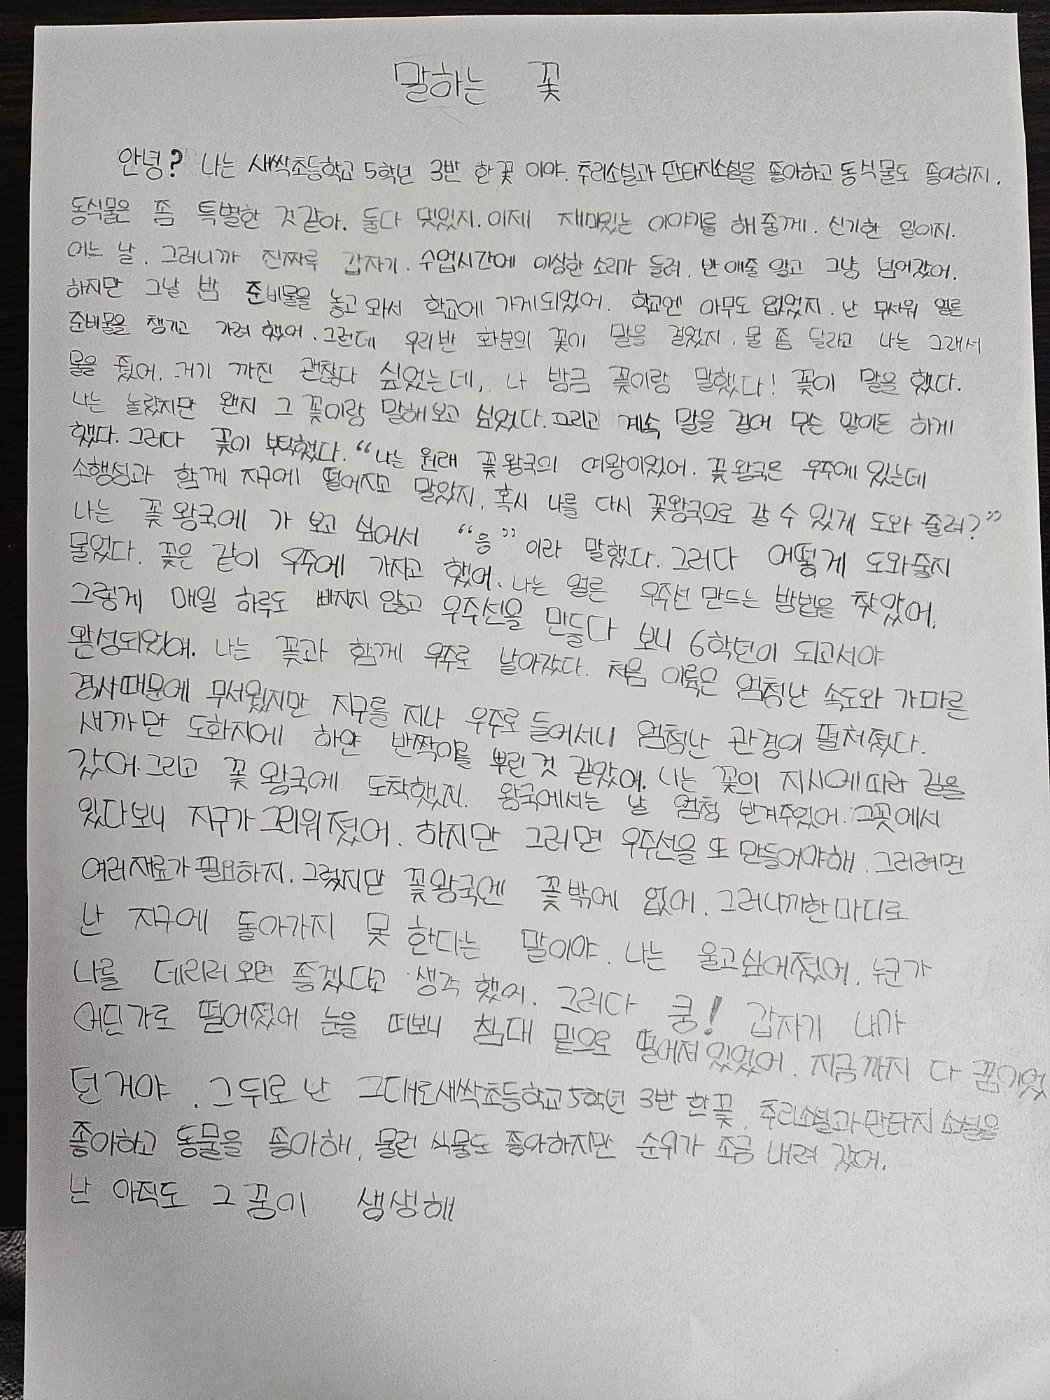 말하는 꽃
안녕? 나는 새싹초등학교 5학년 3반 한꽃 이야. 추리소설과 판타지소설을 좋아하고 동식물도 좋아하지.
동식물은 좀 특별한 것같아. 둘다 멋있지. 이제 재미있는 이야기를 해 줄게. 신기한 일이지.
어느 날. 그러니까 진짜루 갑자기. 수업시간에 이상한 소리가 들려. 반 애줄 알고 그냥 넘어갔어.
하지만 그날 밤 준비물을 놓고 와서 학교에 가게되었어. 학교엔 아무도 없었지. 난 무서워 얼른
준비물을 챙기고 가려 했어. 그런데 우리반 화분의 꽃이 말을 걸었지. 물 좀 달라고 나는 그래서
물을 줬어. 거기 까진 괜찮다 싶었는데, 나 방금 꽃이랑 말했다! 꽃이 말을 했다.
나는 놀랐지만 왠지 그 꽃이랑 말해보고 싶었다. 그리고 계속 말을 걸어 무슨 말이든 하게
했다. 그러다 꽃이 부탁했다. “나는 원래 꽃왕국의 여왕이었어. 꽃왕국은 우주에 있는데
소행성과 함께 지구에 떨어지고 말았지. 혹시 나를 다시 꽃왕국으로 갈 수 있게 도와 줄래?”
나는 꽃 왕국에 가 보고 싶어서 “응” 이라 말했다. 그러다 어떻게 도와줄지
물었다. 꽃은 같이 우주에 가자고 했어. 나는 얼른 우주선 만드는 방법을 찾았어.
그렇게 매일 하루도 빠지지 않고 우주선을 만들다 보니 6학년이 되고서야
완성되었어. 나는 꽃과 함께 우주로 날아갔다. 처음 이륙은 엄청난 속도와 가파른
경사때문에 무서웠지만 지구를 지나 우주로 들어서니 엄청난 관경이 펼쳐졌다.
새까만 도화지에 하얀 반짝이를 뿌린 것 같았어. 나는 꽃의 지시에따라 길을
갔어. 그리고 꽃 왕국에 도착했지. 왕국에서는 날 엄청 반겨주었어. 그곳에서
있다보니 지구가 그리워 졌어. 하지만 그러면 우주선을 또 만들어야해. 그러려면
여러재료가 필요하지. 그렇지만 꽃왕국엔 꽃밖에 없어. 그러니까한마디로
난 지구에 돌아가지 못 한다는 말이야. 나는 울고싶어졌어. 누군가
나를 데리러 오면 좋겠다고 생각 했어. 그러다 쿵! 갑자기 내가
어딘가로 떨어졌어 눈을 떠보니 침대 밑으로 떨어져있었어. 지금까지 다 꿈이었
던거야. 그 뒤로 난 그대로새싹초등학교 5학년 3반 한꽃. 추리소설과판타지 소설을
좋아하고 동물을 좋아해, 물론 식물도 좋아하지만 순위가 조금 내려 갔어.
난 아직도 그 꿈이 생생해